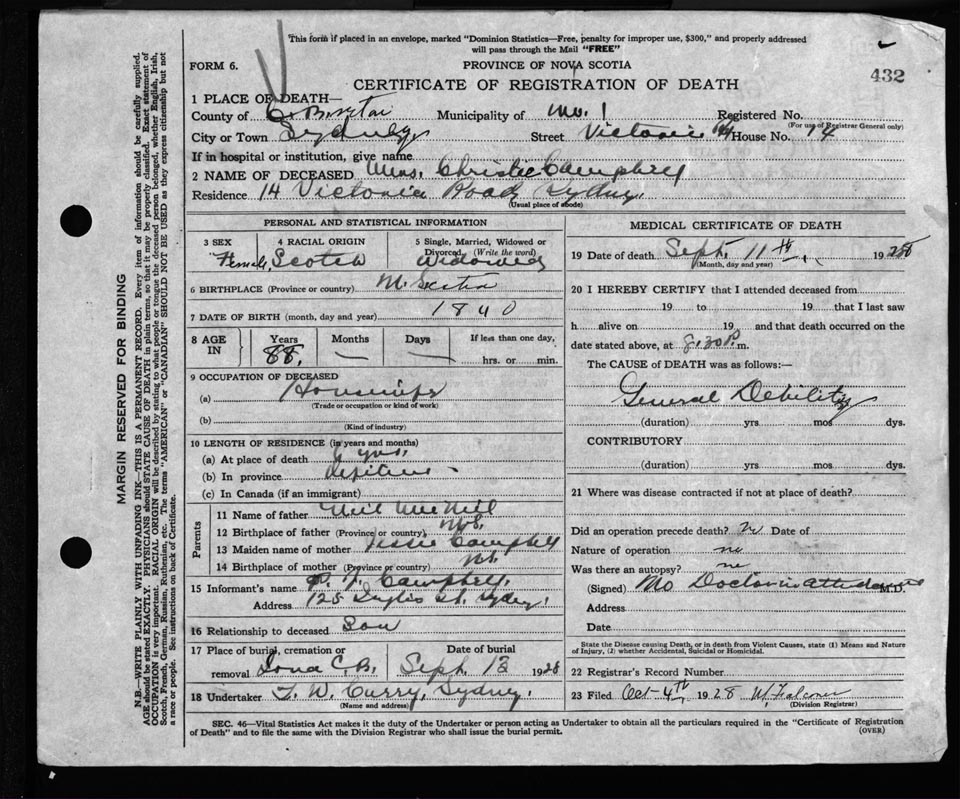 This form if placed in an envelope, marked "Dominion Statistics—Free, penalty for improper use, $300," and properly addressed
will pass through the Mail "FREE"
FORM 6.
PROVINCE OF NOVA SCOTIA
432
CERTIFICATE OF REGISTRATION OF DEATH
1 PLACE OF DEATH—
County of C. Breton Municipality of No. 1 Registered No.
(For use of Registrar General only)
City or Town Sydney Street Victoria Rd House No. 14
If in hospital or institution, give name
2 NAME OF DECEASED Mrs. Christie Campbell
Residence 14 Victoria Road, Sydney.
(Usual place of abode)
PERSONAL AND STATISTICAL INFORMATION
3 SEX
Female,
4 RACIAL ORIGIN
Scotch
5 Single, Married, Widowed or
Divorced (Write the word)
Widowed
6 BIRTHPLACE (Province or country) N. Scotia
7 DATE OF BIRTH (month, day and year) 1840
8 AGE IN
Years
88.
Months
—
Days
—
If less than one day,
hrs. or min.
9 OCCUPATION OF DECEASED
(a) Housewife
(Trade or occupation or kind of work)
(b)
(Kind of industry)
10 LENGTH OF RESIDENCE (in years and months)
(a) At place of death 6 yrs.
(b) In province Lifetime
(c) In Canada (if an immigrant)
Parents
11 Name of father Neil McNeil
12 Birthplace of father (Province or country) N.S.
13 Maiden name of mother Jessie Campbell
14 Birthplace of mother (Province or country) N.S.
15 Informant's name Campbell.
Address 125 St. Sydney.
16 Relationship to deceased Son
17 Place of burial, cremation or
removal Iona C.B.
Date of burial
Sept. 13 1928
18 Undertaker F. W. Curry, Sydney.
(Name and address)
MEDICAL CERTIFICATE OF DEATH
19 Date of death Sept. 11th, 1928
(Month, day and year)
20 I HEREBY CERTIFY that I attended deceased from
19 to 19 that I last saw
h alive on 19 and that death occurred on the
date stated above, at 8.30 P. m.
The CAUSE of DEATH was as follows:—
General Debility
(duration) yrs mos dys.
CONTRIBUTORY
(duration) yrs. mos. dys.
21 Where was disease contracted if not at place of death?
Did an operation precede death? no Date of
Nature of operation no
Was there an autopsy? no
(Signed) No Doctor in attendance M.D.
Address
Date
State the Disease causing Death, or in Death from Violent Causes, state (1) Means and Nature
of Injury, (2) whether Accidental, Suicidal or Homicidal.
22 Registrar's Record Number
23 Filed Oct-4th 1928 W. Falconer
(Division Registrar)
SEC. 46—Vital Statistics Act makes it the duty of the Undertaker or person acting as Undertaker to obtain all the particulars required in the "Certificate of Registration
of Death" and to file the same with the Division Registrar who shall issue the burial permit.
(OVER)
MARGIN RESERVED FOR BINDING
N.B.—WRITE PLAINLY WITH UNFADING INK—THIS IS A PERMANENT RECORD. Every item of information should be carefully supplied.
AGE should be stated EXACTLY. PHYSICIANS should STATE CAUSE OF DEATH in plain terms, so that it may be properly classified. Exact statement of
OCCUPATION is very important. RACIAL ORIGIN will be described by stating to what people or tongue the deceased person belonged, whether English, Irish,
Scotch, French, German, Russian, Ruthenian, etc. The terms "AMERICAN" or "CANADIAN" SHOULD NOT BE USED as they express citizenship but not
a race or people. See instructions on back of Certificate.